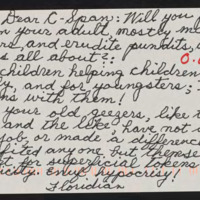 Dear C-Span: Will you
in your adult, mostly m
rs, and erudite pundits,
s all about?:
children helping children
ty, and for youngsters;
ns with them!
your old geezers, like t
and the like have not
job, or made a difference
fited anyone but themse
t for superficial tokens
ictly ... hypocrisy!
Floridian